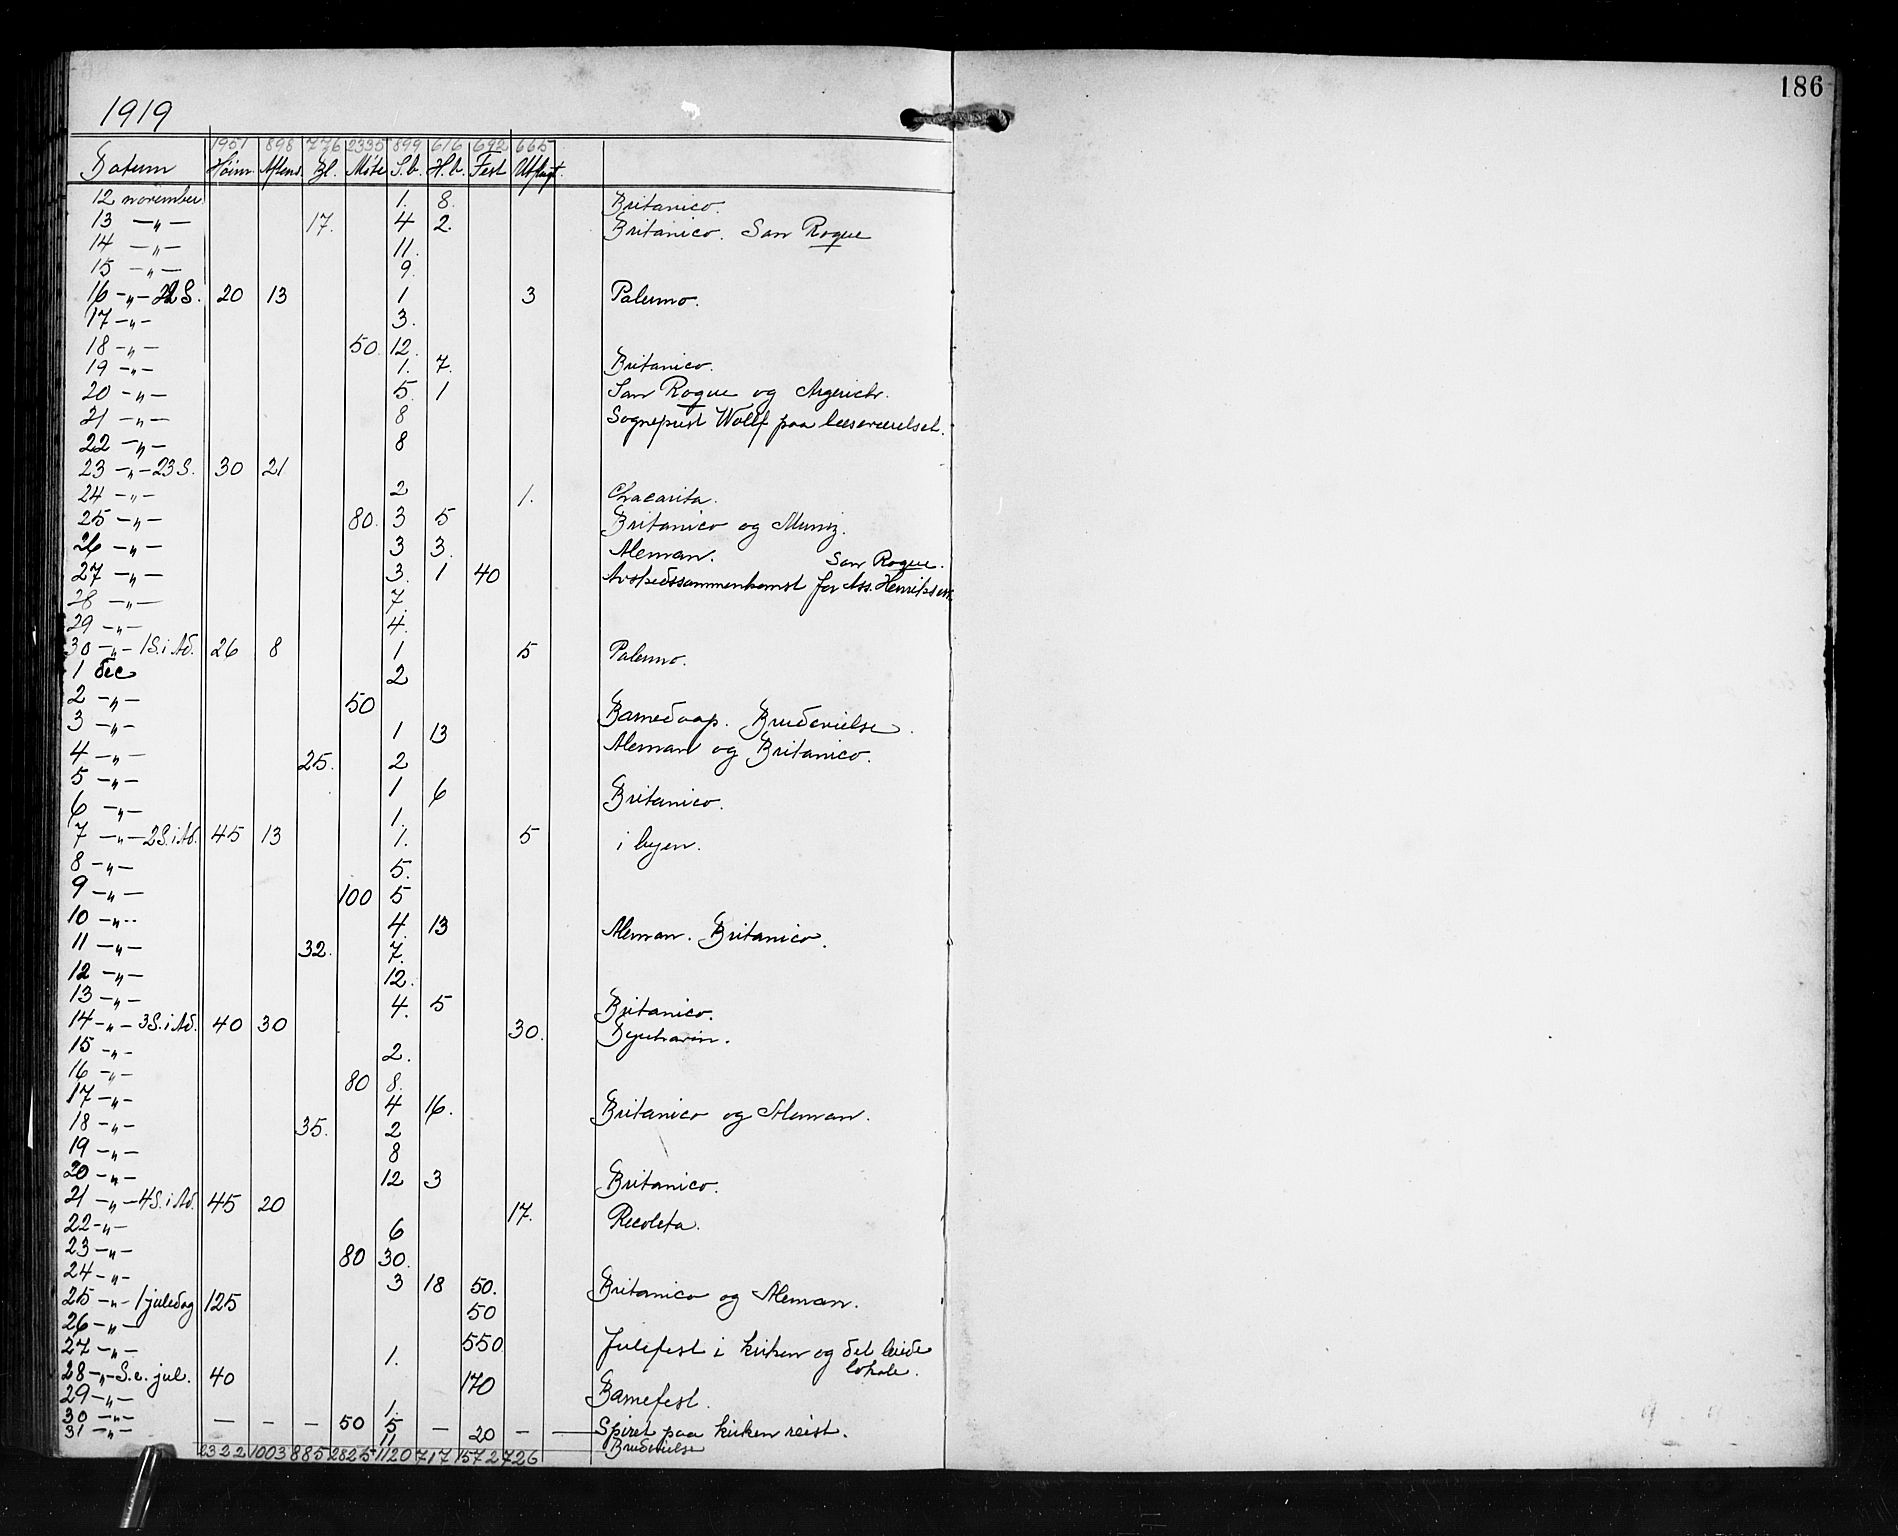 186
1919
1951 898 776 2335 899 616 692 665
Datum Høim. Aftens. Bl. Møte S.b. H.b. Fest Utflugt.
12 november 1. 8. Britanico.
13 —„— 17. 4 2. Britanico. San Roque
14 —„— 11.
15 —„— 9.
16 —„— 22 S. 20 13 1 3 Palermo.
17 —„— 3.
18 —„— 50. 12.
19 —„— 1. 7. Britanico.
20 —„— 5. 1 San Roque og Argerich.
21 —„— 8 Sogneprest Wolff paa læseværelset.
22 —„— 8
23 —„— 23 S. 30 21
24 —„— 2 1. Chacarita.
25 —„— 80. 3 5 Britanico og Muniz.
26 —„— 3 3. Aleman.
27 —„— 3. 1 40 Avskedssammenkomst for Ass. Henriksen. San Roque.
28 —„— 7.
29 —„— 4.
30 —„— 1 S. i Ad. 26 8 1 5 Palermo.
1 dec 2
2 —„— 50 Barnedaap. Brudevielse.
3 —„— 1 13 Aleman og Britanico.
4 —„— 25. 2
5 —„— 1 6 Britanico.
6 —„— 1.
7 —„— 2 S. i Ad. 45 13 1. 5 i byen.
8 —„— 5.
9 —„— 100 5
10 —„— 4. 13 Aleman. Britanico.
11 —„— 32. 7.
12 —„— 12.
13 —„— 4. 5 Britanico.
14 —„— 3 S. i Ad. 40 30 30. Dyrehaven.
15 —„— 2.
16 —„— 80 8.
17 —„— 4 16. Britanico og Aleman.
18 —„— 35. 2
19 —„— 8
20 —„— 12 3 Britanico.
21 —„— 4 S. i Ad. 45 20 17. Recoleta.
22 —„— 6
23 —„— 80 30.
24 —„— 3 18 50. Britanico og Aleman.
25 —„— 1 juledag 125 50
26 —„— 550 Julefest i kirken og det leiede lokale.
27 —„— 1.
28 —„— S. e. jul. 40 170 Barnefest.
29 —„— 1.
30 —„— — — — 50 5 — 20 — — Spiret paa kirken reist.
31 —„— 11 Brudevielse
2322 1003 885 2825 1120 717 1572 726